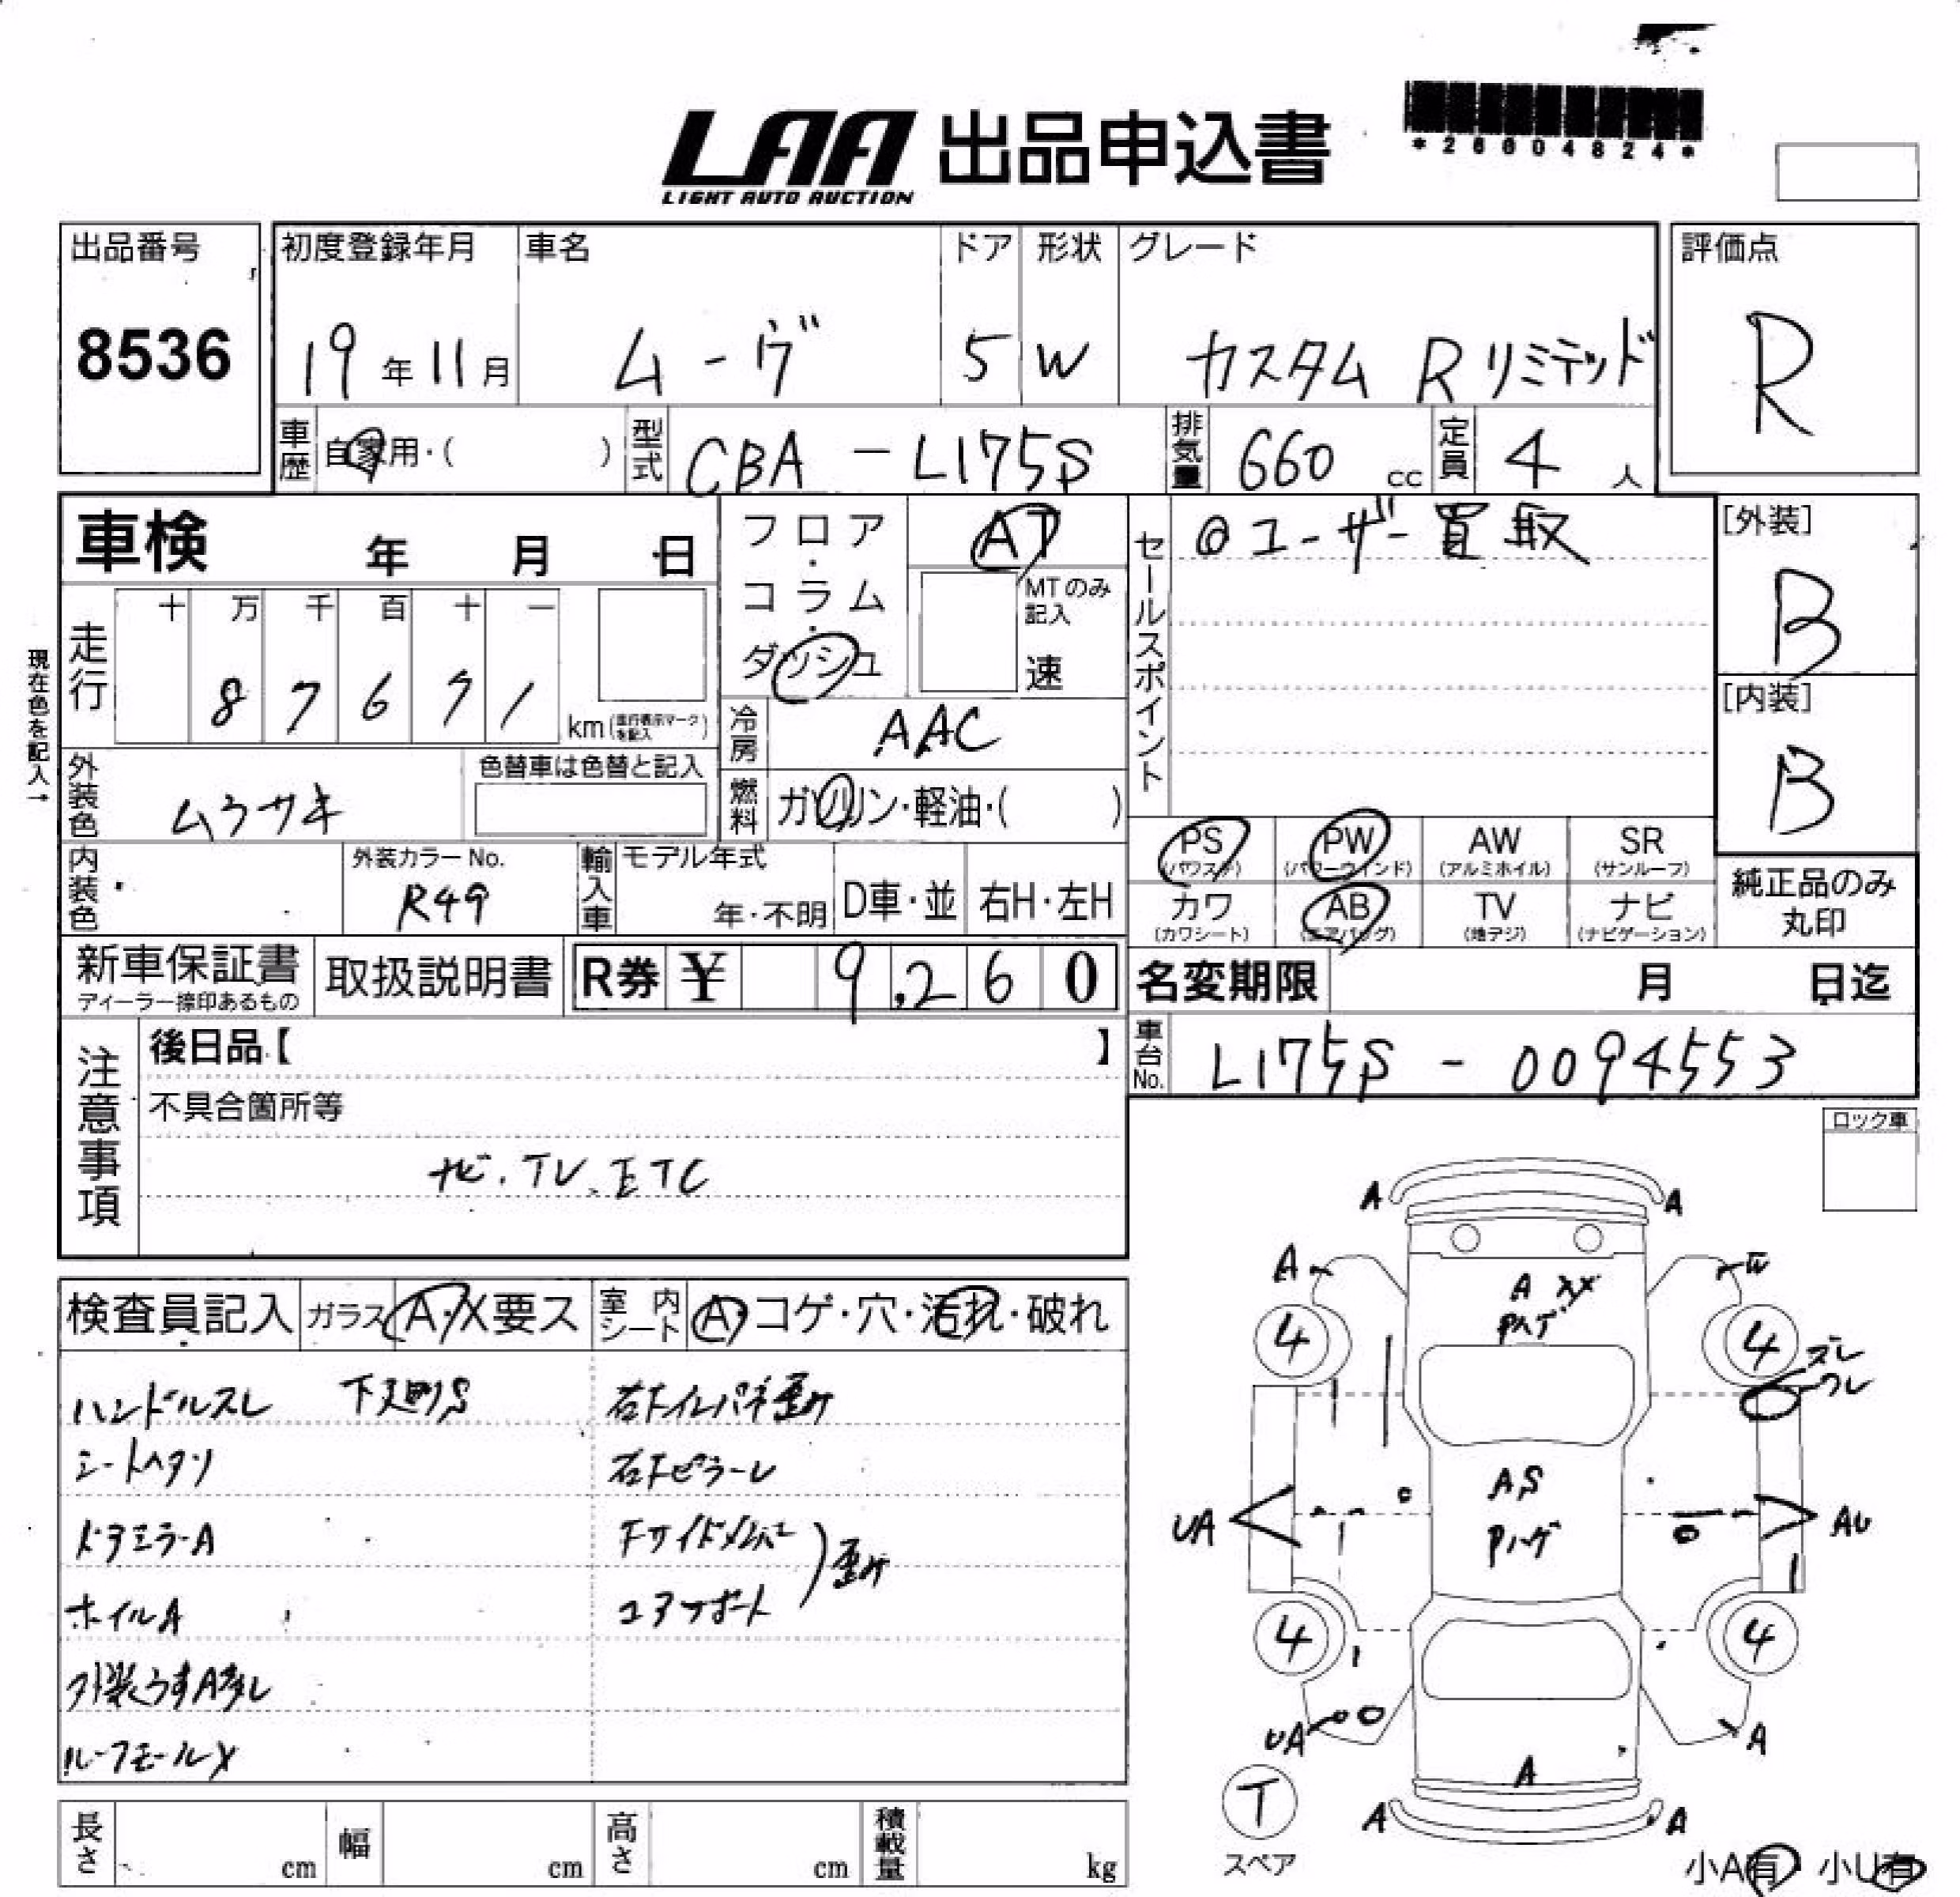 LAA 出品申込書
LIGHT AUTO AUCTION
*26604824*
出品番号 初度登録年月 車名 ドア 形状 グレード 評価点
8536 19年11月 ムーヴ 5 W カスタム Rリミテッド R
車歴 自家用・( ) 型式 CBA-L175S 排気量 660 cc 定員 4 人
車検 年 月 日
フロア・コラム・ダッシュ AT
MTのみ記入 速
セールスポイント @ユーザー買取
[外装] B
[内装] B
現在色を記入→
走行 十 万 千 百 十 一
8 7 6 7 1 km (走行表示マークを記入)
冷房 AAC
外装色 ムラサキ 色替車は色替と記入
燃料 ガソリン・軽油・( )
内装色 外装カラーNo. R49 輸入車 モデル年式 年・不明 D車・並 右H・左H
PS (パワステ) PW (パワーウィンド) AW (アルミホイル) SR (サンルーフ)
カワ (カワシート) AB (エアバッグ) TV (地デジ) ナビ (ナビゲーション)
純正品のみ丸印
新車保証書 ディーラー捺印あるもの 取扱説明書 R券 ¥ 9,260
名変期限 月 日迄
車台No. L175S-0094553
注意事項 後日品【 】
不具合箇所等
ナビ.TV.ETC
ロック車
検査員記入 ガラス A・X要ス 室内シート A・コゲ・穴・汚れ・破れ
ハンドルスレ 下廻りS
シートヘタリ
ドアミラーA
ホイルA
外装うすA多し
ルーフモールX
右Fピラーレ
コアサポート
歪み
A A
A W
A XX
Pハゲ
4 4
スレ
ワレ
AS
Pハゲ
UA AU
4 4
UA A
A
A A
T
スペア
小A有 小U有
長さ cm 幅 cm 高さ cm 積載量 kg